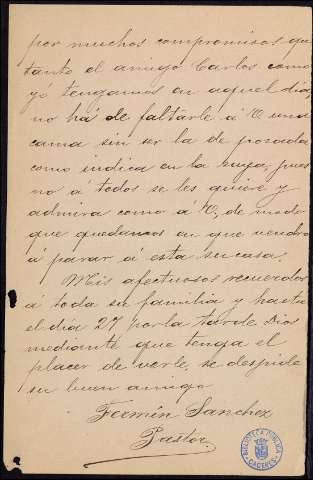 por muchos compromisos que
tanto el amigo Carlos como
yó tengamos en aquel dia,
no há de faltarle á V. una
cama sin ser la de posada
como indica en la suya, pues
no á todos se les quiere y
admira como á V, de modo
que quedamos en que vendrá
á parar á esta su casa.
Mis afectuosos recuerdos
á toda su familia y hasta
el día 27 por la tarde Dios
mediante que tenga el
placer de verle, se despide
su buen amigo
Fermín Sanchez
Pastor
BIBLIOTECA PÚBLICA
CÁCERES